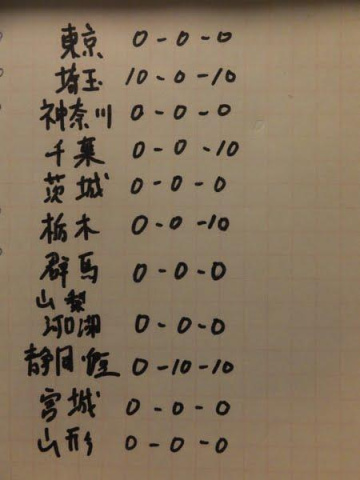 東京 0-0-0
埼玉 10-0-10
神奈川 0-0-0
千葉 0-0-10
茨城 0-0-0
栃木 0-0-10
群馬 0-0-0
山梨
河口湖 0-0-0
静岡 0-10-10
宮城 0-0-0
山形 0-0-0